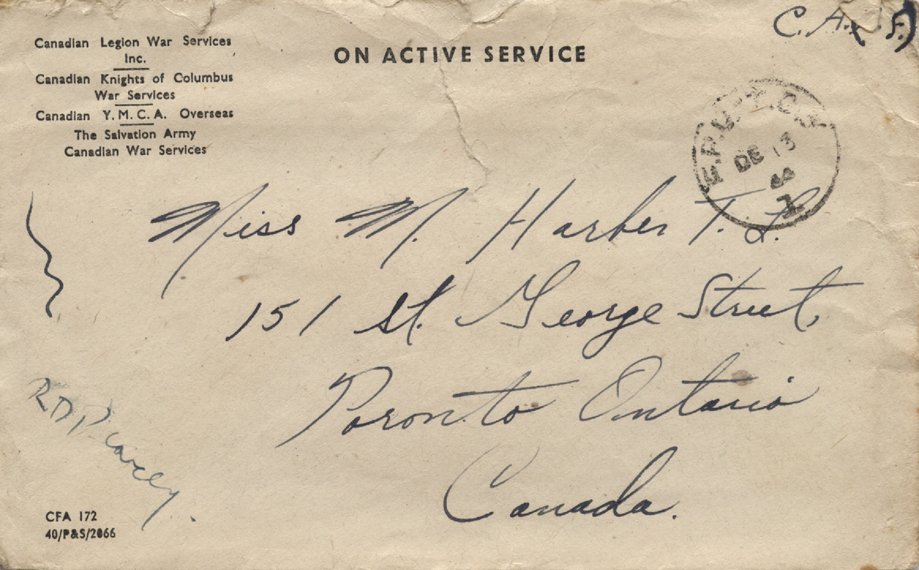 Canadian Legion War Services
Inc.
Canadian Knights of Columbus
War Services
Canadian Y.M.C.A. Overseas
The Salvation Army
Canadian War Services
ON ACTIVE SERVICE
C.A.
DE 13
44
1
Miss M. Harber T.L.
151 St. George Street,
Toronto Ontario
Canada.
CFA 172
40/P&S/2066